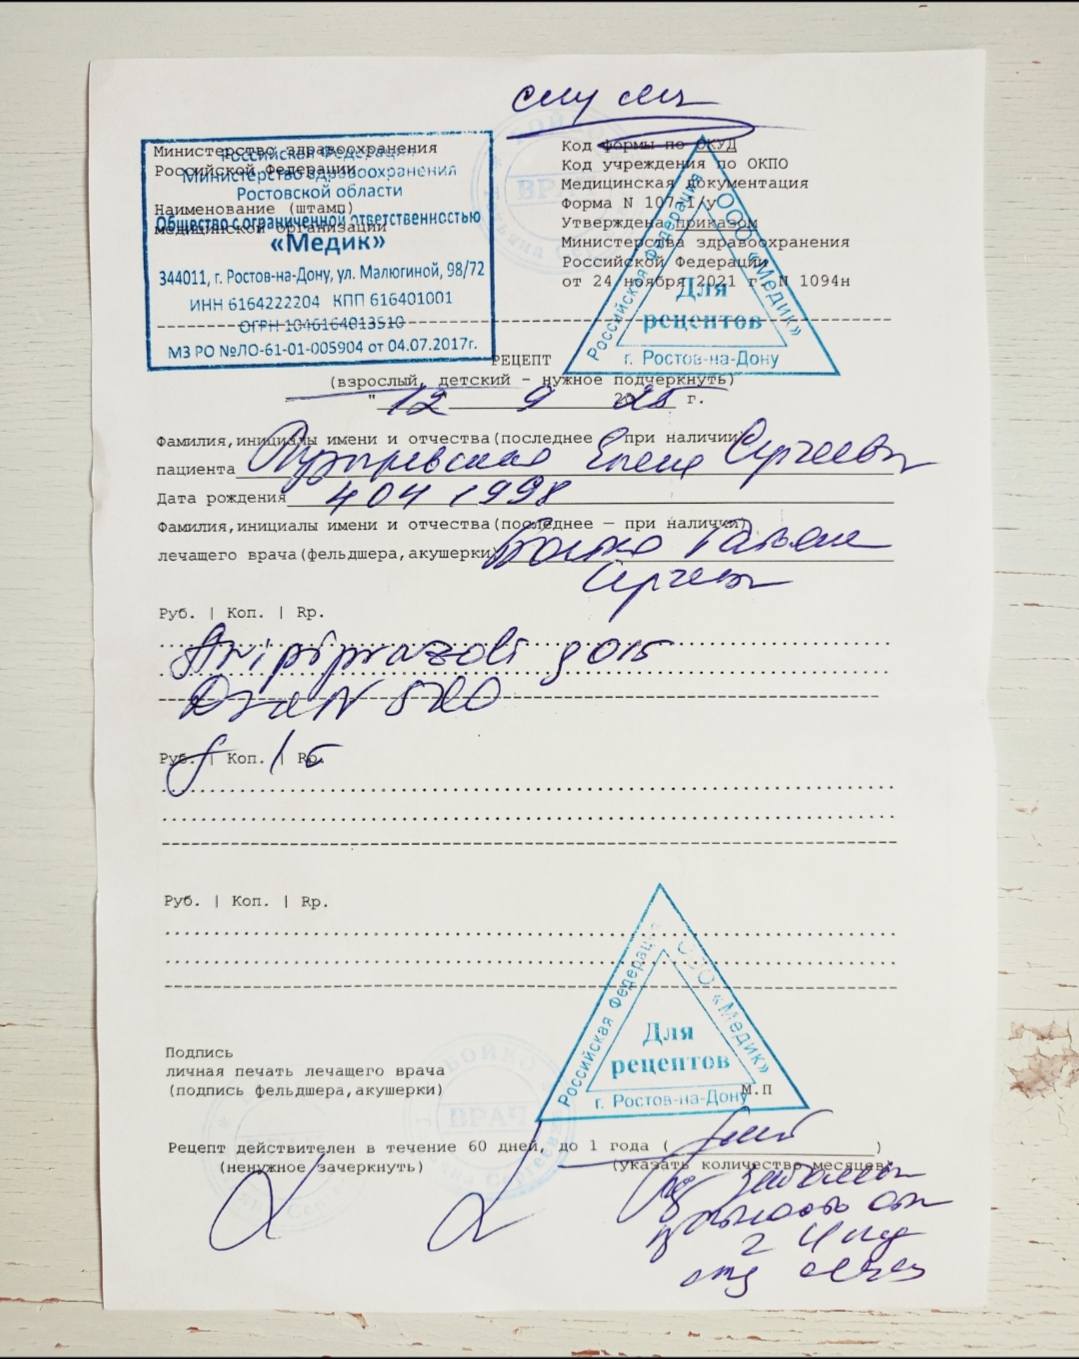 Министерство здравоохранения
Российской Федерации
Наименование (штамп)
медицинской организации
Российская Федерация
Министерство здравоохранения
Ростовской области
Общество с ограниченной ответственностью
«Медик»
344011, г. Ростов-на-Дону, ул. Малюгиной, 98/72
ИНН 6164222204 КПП 616401001
ОГРН 1046164013510
МЗ РО №ЛО-61-01-005904 от 04.07.2017г.
Код формы по ОКУД
Код учреждения по ОКПО
Медицинская документация
Форма N 107-1/у
Утверждена приказом
Министерства здравоохранения
Российской Федерации
от 24 ноября 2021 г. N 1094н
Российская Федерация
ООО «Медик»
Для
рецептов
г. Ростов-на-Дону
ВРАЧ
РЕЦЕПТ
(взрослый, детский - нужное подчеркнуть)
" 12 9 2025 г.
Фамилия,инициалы имени и отчества(последнее — при наличии)
пациента Елена Сергеевна
Дата рождения 4 04 1998
Фамилия,инициалы имени и отчества(последнее — при наличии)
лечащего врача(фельдшера,акушерки) Бойко Татьяна
Сергеевна
Руб. | Коп. | Rp.
Aripiprazoli 0,015
Руб. | Коп. | Rp.
Руб. | Коп. | Rp.
Российская Федерация
ООО «Медик»
Для
рецептов
г. Ростов-на-Дону
Подпись
личная печать лечащего врача
(подпись фельдшера,акушерки) М.П
БОЙКО
ВРАЧ
Рецепт действителен в течение 60 дней, до 1 года ( )
(ненужное зачеркнуть) (указать количество месяцев)